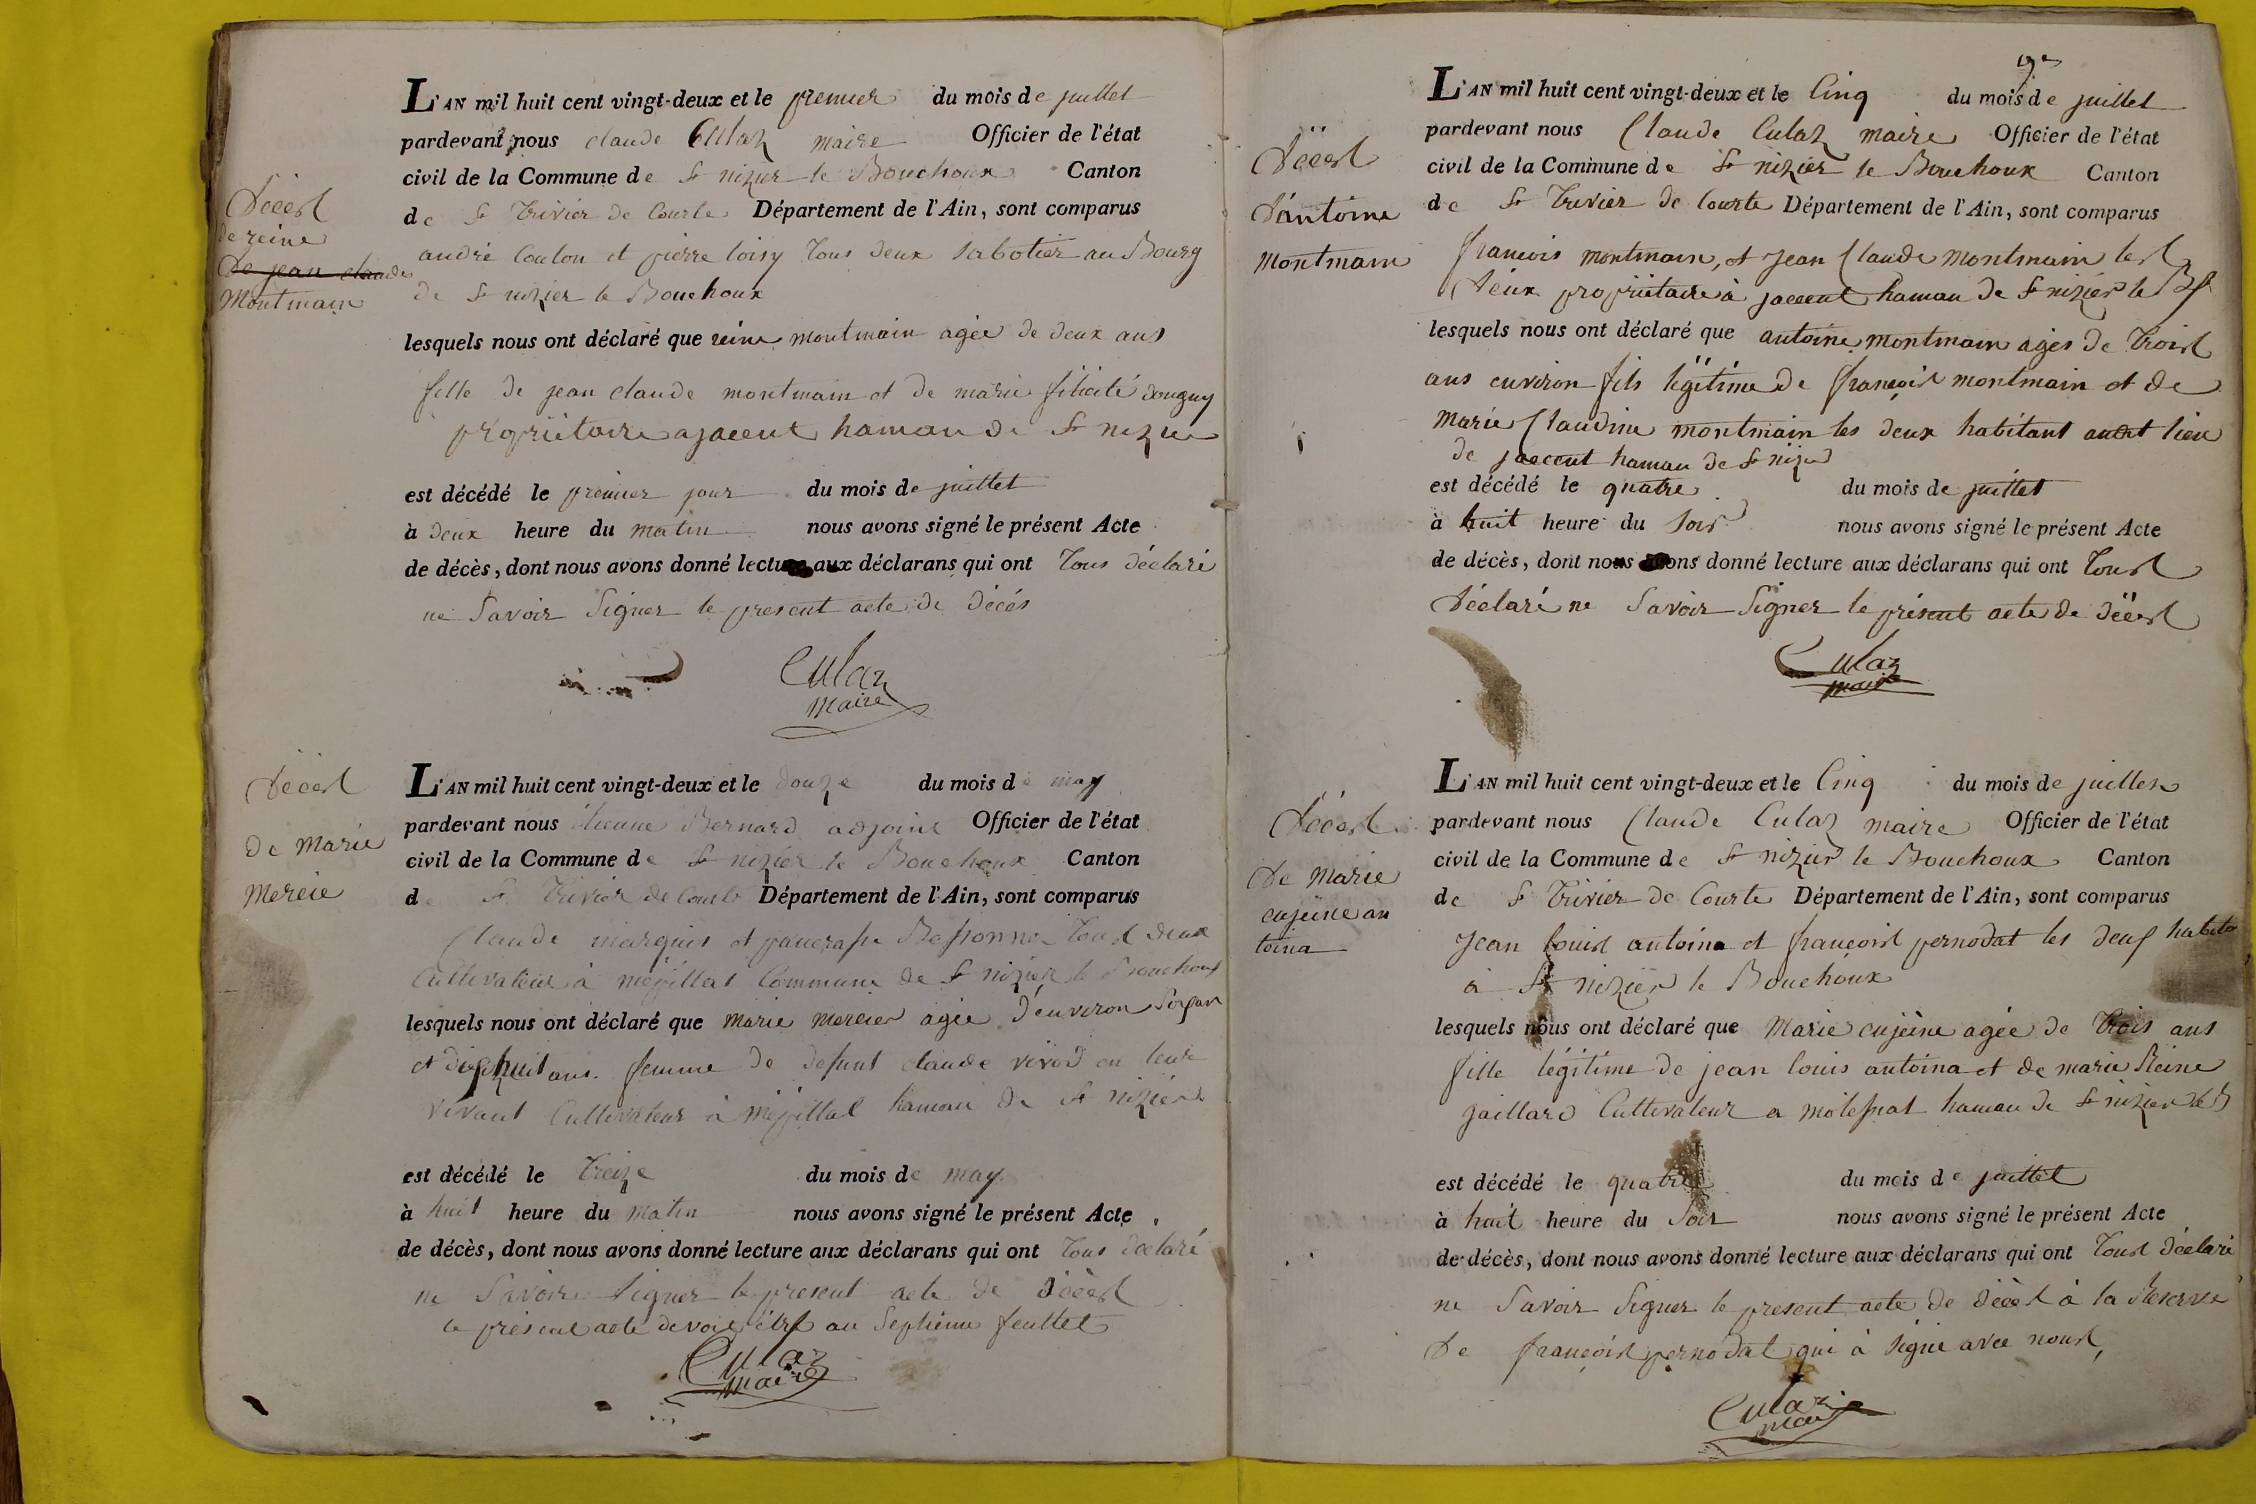 Décest
de reine
de jean claude
Montmain
L'AN mil huit cent vingt-deux et le premier du mois de juillet
pardevant nous claude Culaz maire Officier de l'état
civil de la Commune de St nizier le Bouchoux Canton
de St Trivier de Courte Département de l'Ain, sont comparus
andré Coulon et pierre loisy tous deux sabotier au Bourg
de St nizier le Bouchoux
lesquels nous ont déclaré que reine montmain agée de deux ans
fille de jean claude montmain et de marie félicité donguy
propriétaire a jacent hamau de St nizier
est décédé le premier jour du mois de juillet
à deux heure du matin nous avons signé le présent Acte
de décès, dont nous avons donné lecture aux déclarans qui ont tous déclaré
ne Savoir Signer le present acte de décés
Culaz
maire
Décest
de Marie
Mercie
L'AN mil huit cent vingt-deux et le douze du mois de may
pardevant nous étienne Bernard adjoint Officier de l'état
civil de la Commune de St nizier le Bouchoux Canton
de St Trivier de Courte Département de l'Ain, sont comparus
Claude marquis et pancrasse Bessonna tous deux
Cultivateur à mépillat Commune de St nizier le Bouchoux
lesquels nous ont déclaré que marie mercier agée d'environ Soixan
et dixhuit ans. femme de defunt claude vivod en leur
vivant Cultivateur à mépillat hamau de St nizier
est décédé le treize du mois de may
à huit heure du matin nous avons signé le présent Acte
de décès, dont nous avons donné lecture aux déclarans qui ont tous déclaré
ne Savoir Signer le present acte de décest
le présent acte devoit être au Septieme feuillet
Culaz
maire
9e
Décest
d'antoine
Montmain
L'AN mil huit cent vingt-deux et le Cinq du mois de juillet
pardevant nous Claude Culaz maire Officier de l'état
civil de la Commune de St nizier le Bouchoux Canton
de St Trivier de Courte Département de l'Ain, sont comparus
françois montmain, et Jean Claude montmain lest
deux propriétaire à jacent hamau de St nizier le Bx
lesquels nous ont déclaré que antoine montmain agés de troist
ans environ fils légitime de françoist montmain et de
marie Claudine montmain les deux habitant audt lieu
de jacent hamau de St nizier
est décédé le quatre du mois de juillet
à huit heure du Soir nous avons signé le présent Acte
de décès, dont nous avons donné lecture aux déclarans qui ont toust
déclaré ne Savoir Signer le présent acte de décest
Culaz
maire
Décest
de Marie
eujeine an
toina
L'AN mil huit cent vingt-deux et le Cinq du mois de juillet
pardevant nous Claude Culaz maire Officier de l'état
civil de la Commune de St nizier le Bouchoux Canton
de St Trivier de Courte Département de l'Ain, sont comparus
Jean louist antoina et françoist pernodat les deux habito
à St nizier le Bouchoux
lesquels nous ont déclaré que Marie eujeine agée de trois ans
fille légitime de jean louis antoina et de marie Reine
gaillard Cultivateur a molefnat hamau de St nizier le B
est décédé le quatre du mois de juillet
à huit heure du Soir nous avons signé le présent Acte
de décès, dont nous avons donné lecture aux déclarans qui ont toust déclaré
ne Savoir Signer le present acte de décest à la Reserve
de françoist pernodat qui à Signé avec noust
Culaz
maire